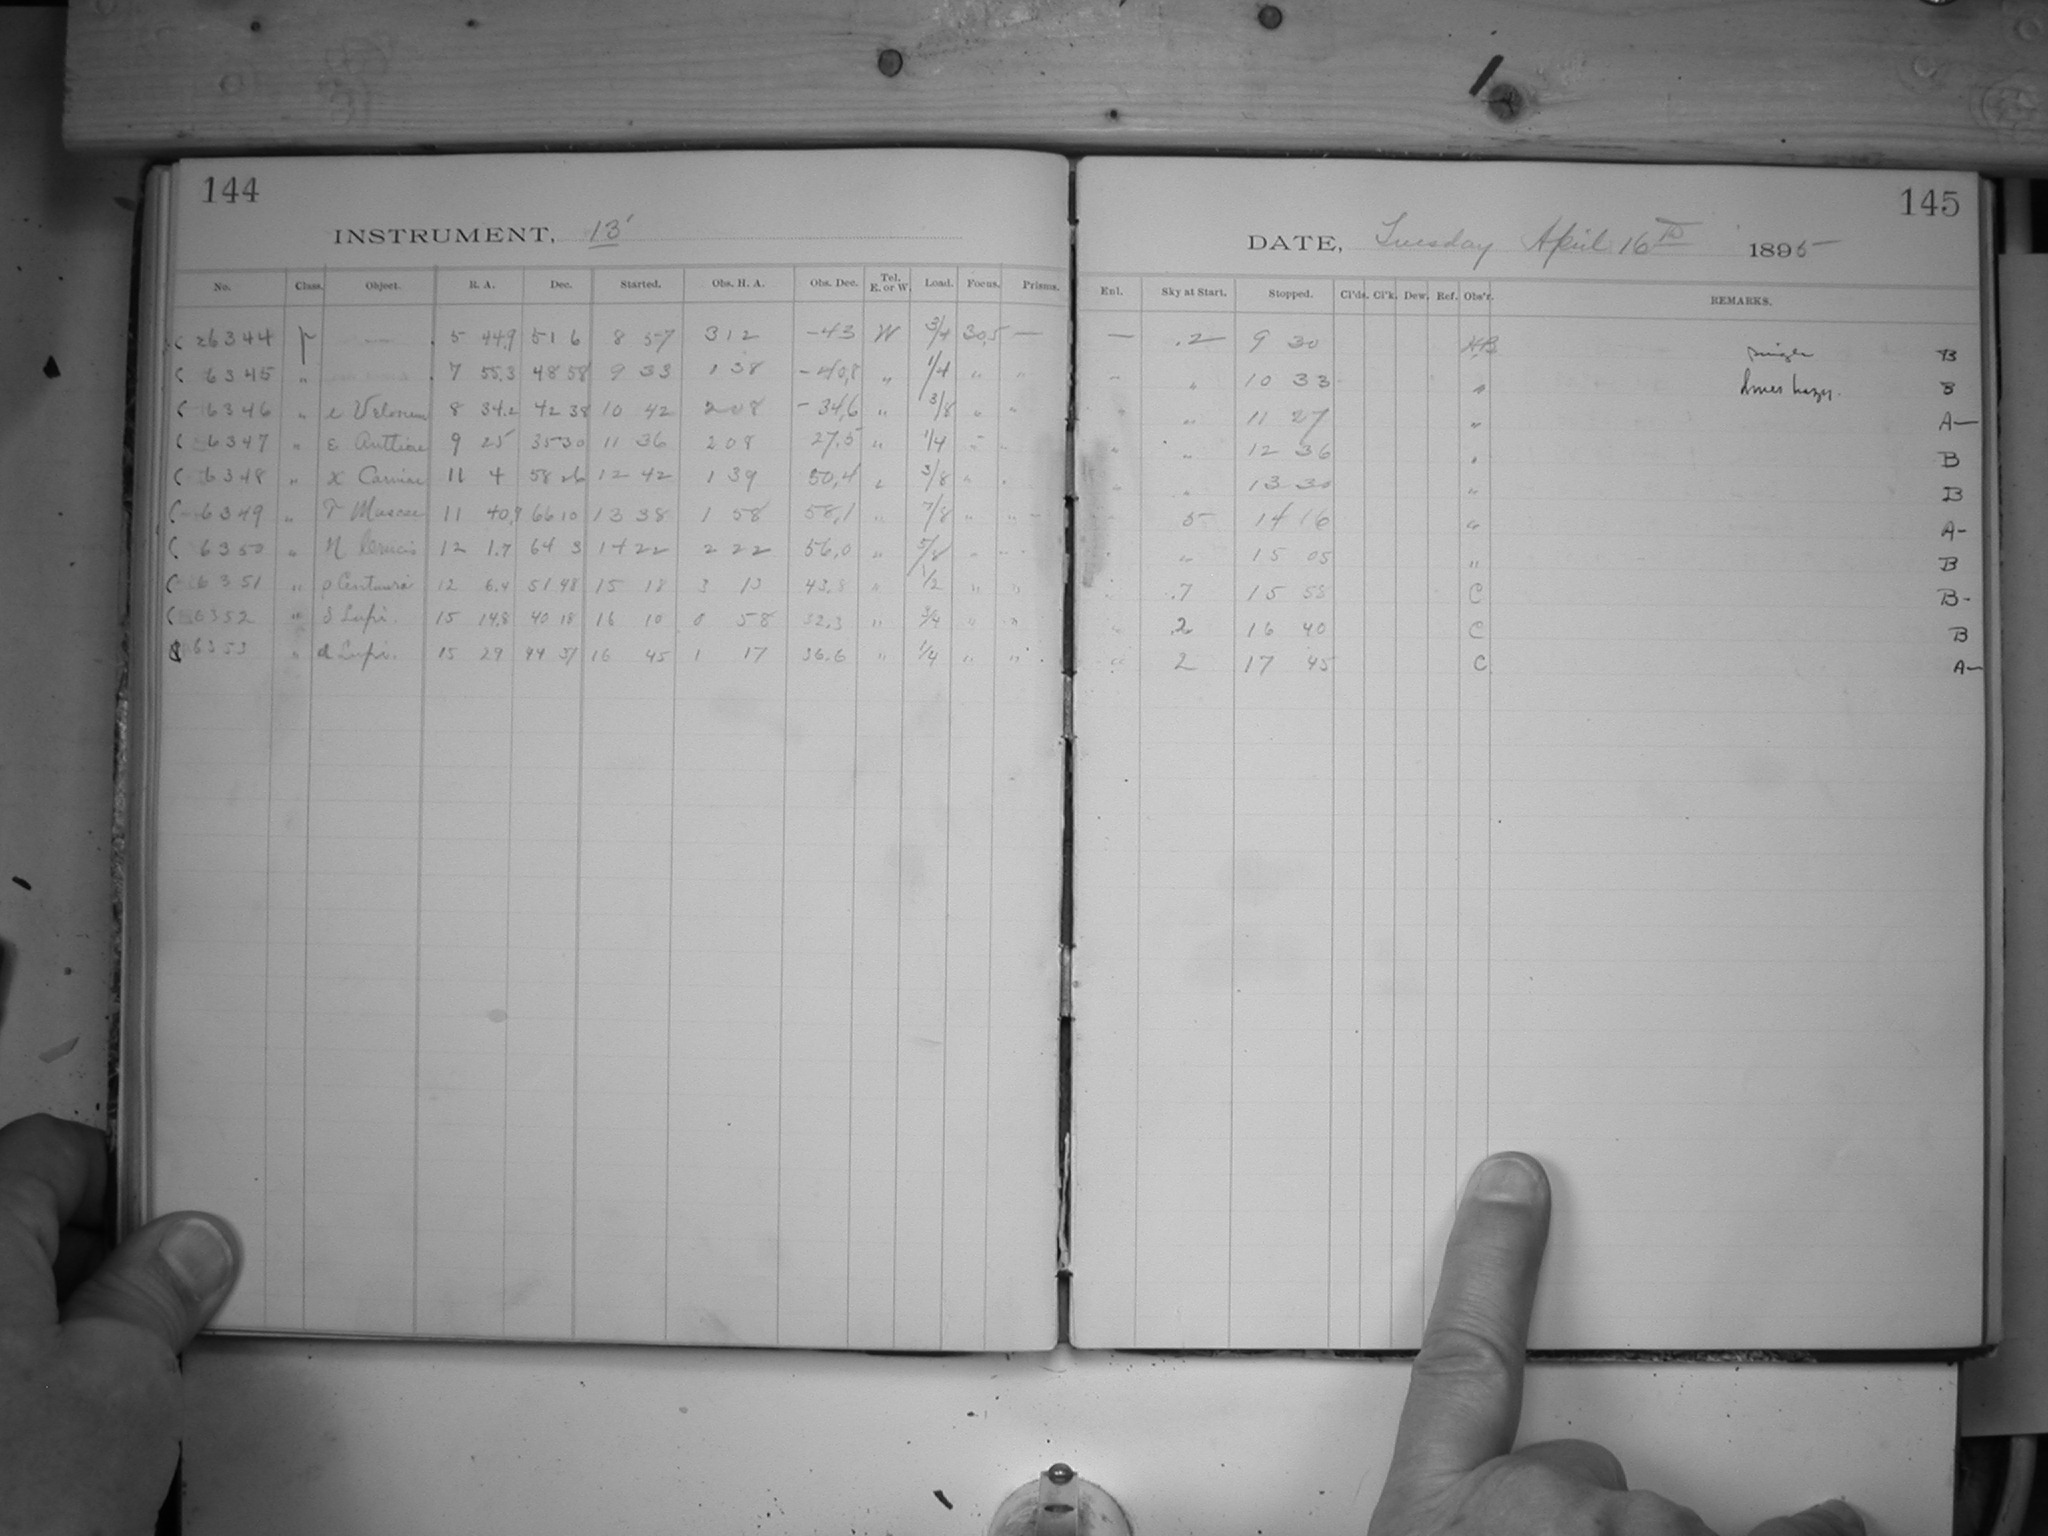 144
INSTRUMENT, 13'
No. Class. Object. R. A. Dec. Started. Obs. H. A. Obs. Dec. Tel. E. or W. Load. Focus. Prisms.
6344 5 44.9 51 6 8 57 3 12 -43 W 3/4 30.5 —
6345 " 7 55.3 48 58 9 33 1 38 -40.8 " 1/4 " "
6346 " e Velorum 8 34.2 42 38 10 42 2 08 -34.6 " 3/8 " "
6347 " ε Antliae 9 25 35 30 11 36 2 08 27.5 " 1/4 " "
6348 " x Carinae 11 4 58 26 12 42 1 39 50.4 " 3/8 " "
6349 " Muscae 11 40.9 66 10 13 38 1 58 58.1 " 7/8 " "
6350 " Crucis 12 1.7 64 3 14 22 2 22 56.0 " 5/8 " "
6351 " ρ Centauri 12 6.4 51 48 15 18 3 13 43.8 " 1/2 " "
6352 " δ Lupi. 15 14.8 40 18 16 10 0 58 32.3 " 3/4 " "
6353 " d Lupi. 15 29 44 37 16 45 1 17 36.6 " 1/4 " "
145
DATE, Tuesday April 16th 1895
Enl. Sky at Start. Stopped. Cl'ds. Cl'k. Dew. Ref. Obs'r. REMARKS.
— .2 9 30 single B
" " 10 33 " lines hazy. B
" " 11 27 " A—
" " 12 36 " B
" " 13 30 " B
" 5 14 16 " A-
" " 15 05 " B
" .7 15 58 C B-
" .2 16 40 C B
" 2 17 45 C A—